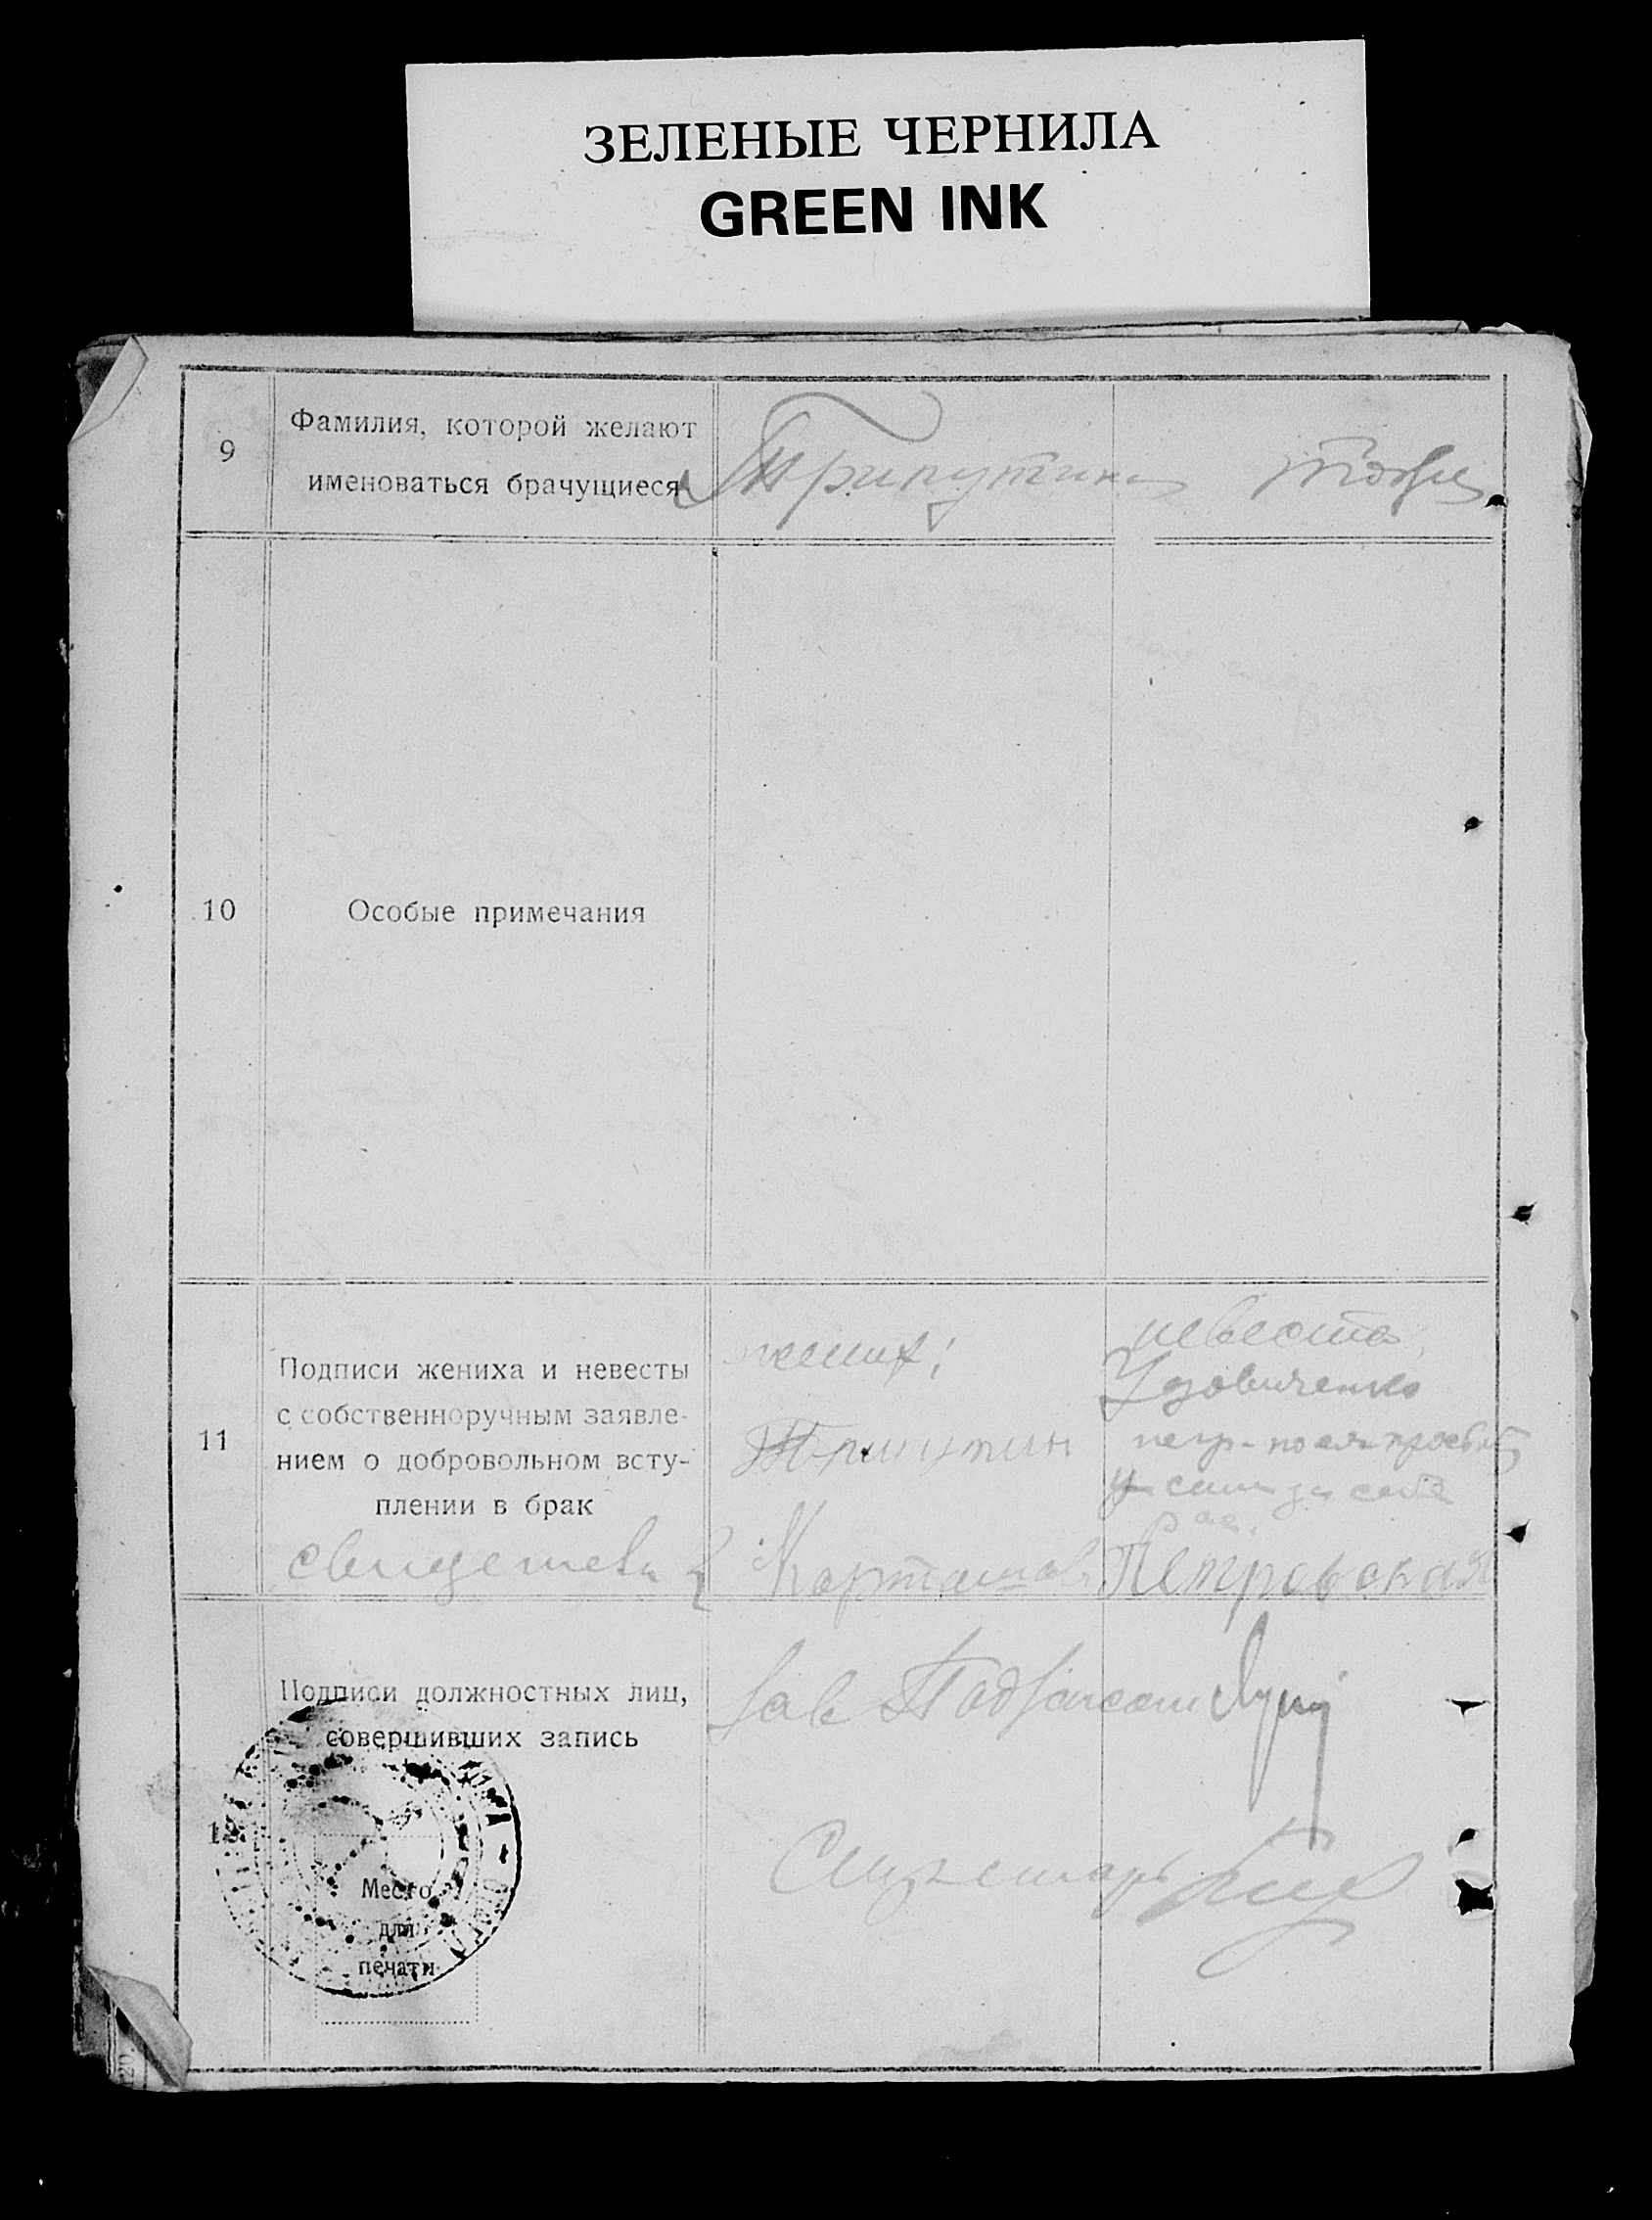 ЗЕЛЕНЫЕ ЧЕРНИЛА
GREEN INK
9
Фамилия, которой желают
именоваться брачущиеся
Трипутина
тоже
10
Особые примечания
11
Подписи жениха и невесты
с собственноручным заявле-
нием о добровольном всту-
плении в брак
жених:
Трипутин
невеста
Удовиченко
негр-ная
свидетели
Карташов
Петровская
Подписи должностных лиц,
совершивших запись
Зав Подзагсом
Секретарь
Место
для
печати